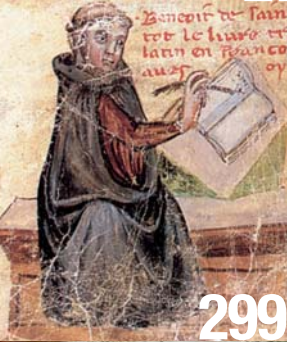 Beneoit de Sain
tot le liure
latin en franco
oy
299